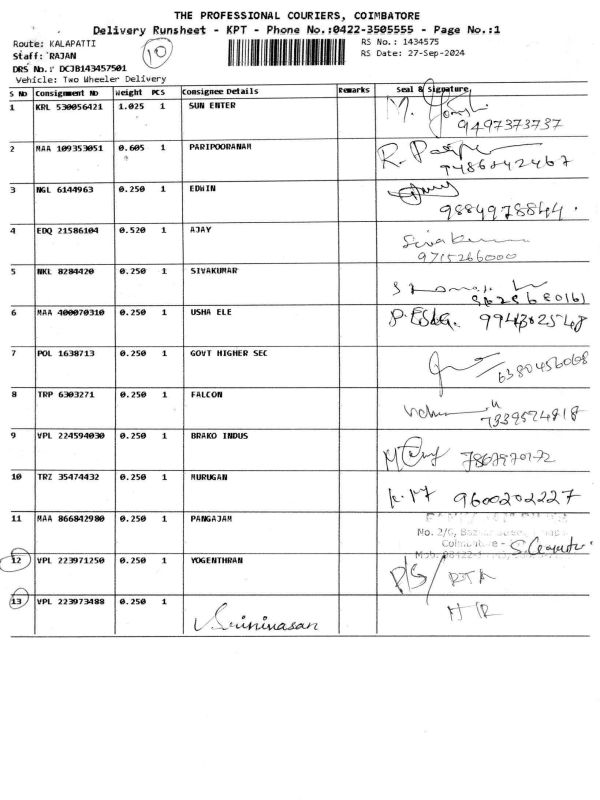 THE PROFESSIONAL COURIERS, COIMBATORE
Delivery Runsheet - KPT - Phone No.:0422-3505555 - Page No.:1
Route: KALAPATTI
10
RS No.: 1434575
Staff: RAJAN
RS Date: 27-Sep-2024
DRS No.: DCJB143457501
Vehicle: Two Wheeler Delivery
S No Consignment No Weight PCS Consignee Details Remarks Seal & Signature
1 KRL 530056421 1.025 1 SUN ENTER
9497373737
2 MAA 109353051 0.605 1 PARIPOORANAM
R.
3 NGL 6144963 0.250 1 EDWIN
9884978844.
4 EDQ 21586104 0.520 1 AJAY
Sivakumar
9715266000
5 NKL 8284420 0.250 1 SIVAKUMAR
6 MAA 400070310 0.250 1 USHA ELE
7 POL 1638713 0.250 1 GOVT HIGHER SEC
6380456068
8 TRP 6303271 0.250 1 FALCON
9 VPL 224594030 0.250 1 BRAKO INDUS
10 TRZ 35474432 0.250 1 MURUGAN
9600202227
11 MAA 866842980 0.250 1 PANGAJAM
No. 2/6,
Coimbatore -
12 VPL 223971250 0.250 1 YOGENTHRAN
13 VPL 223973488 0.250 1
V. Srinivasan